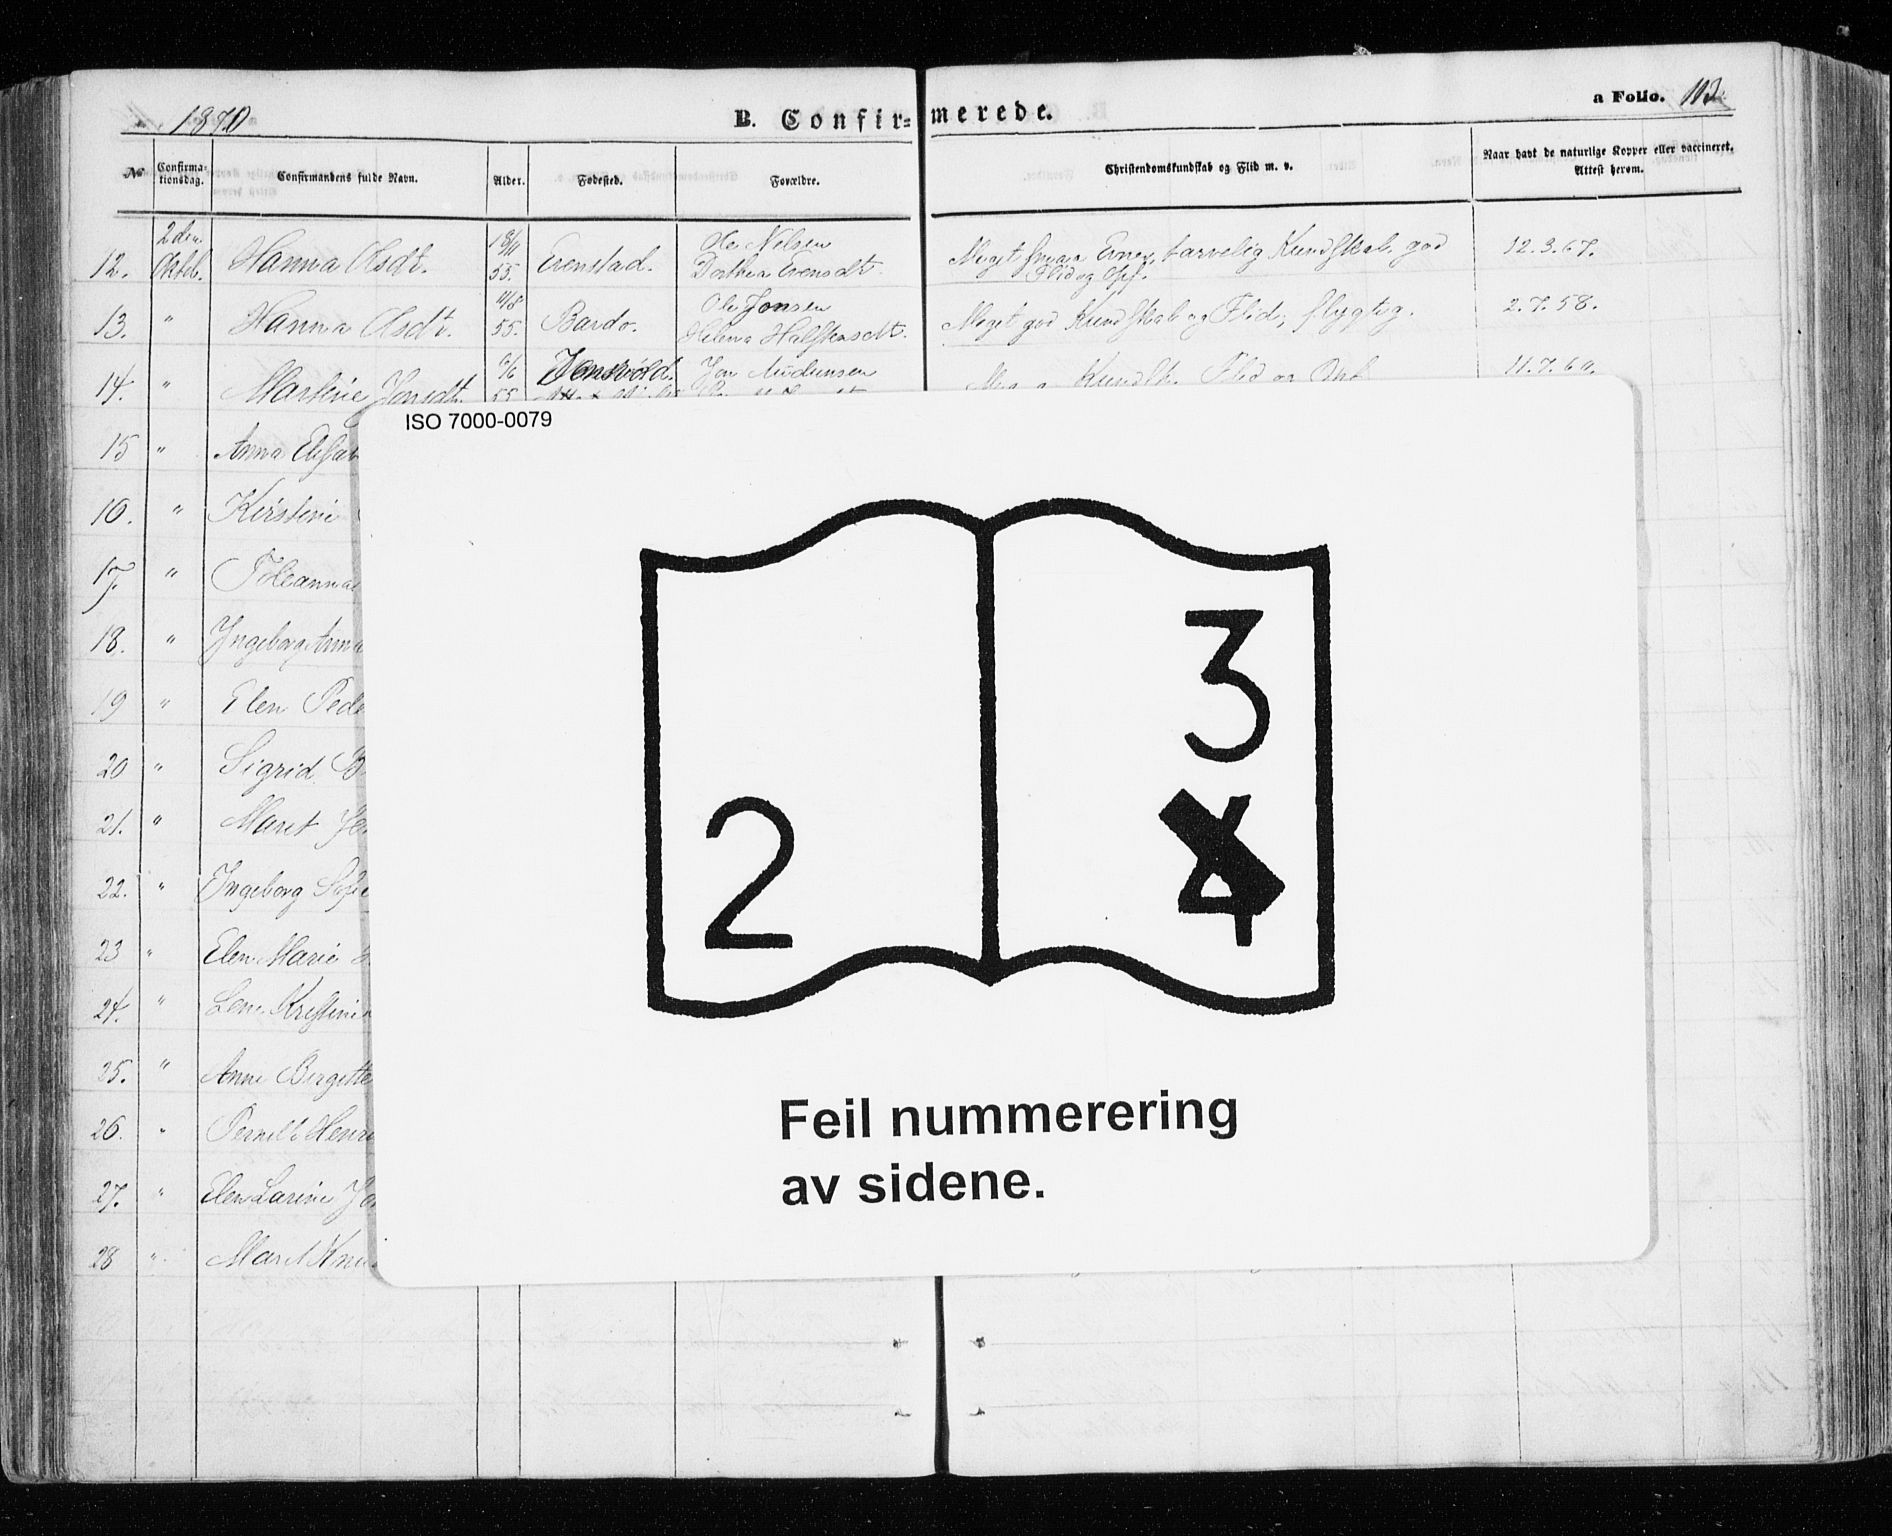 1870
B. Confir=
merede.
a Folio. 113
No
Confirma-
tionsdag.
Confirmandens fulde Navn.
Alder.
Fødested.
Forældre.
Christendomskundskab og Flid m. v.
Naar havt de naturlige Kopper eller vaccineret.
Attest herom.
2den
Ole Nelsen
12. Oktob. Hanna Olsdt. 55. Evenstad. Dorthea Evensdt
Meget smaa Evner, tarvelig Kundskab, god
Flid og Opf.
12.3.67.
Ole Jonsen
13. " Hanna Olsdt. 55. Bardo. Helena Halstensdt.
Meget god Kundskab og Flid, flygtig.
2.7.58.
14. " Martine Jonsdt. 55 Jon Audunsen
Kundsk. Flid og Opf.
11.7.60.
15 " Anna Elisab
16. " Kirstine
17. " Joleanna
18. " Ingeborg Anna
19 " Elen Pede
20 " Sigrid B
21. " Maret
22. " Ingeborg Sofie
23 " Elen Marie
24. " Lene Kristine
25. " Anne Bergitte
26. " Pernille Henri
27. " Elen Larine Jo
28 " Maret Knu
ISO 7000-0079
2
3
4
Feil nummerering
av sidene.